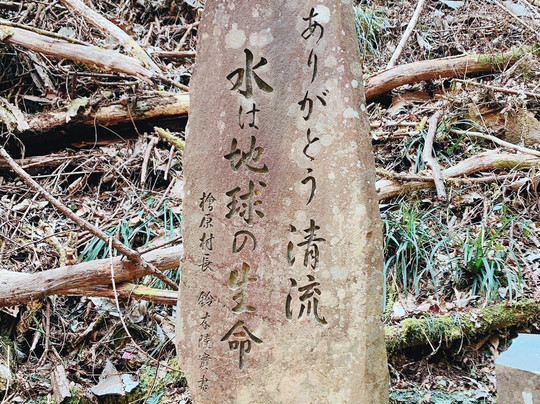 ありがとう清流
水は地球の生命
檜原村長 鈴木陸實書